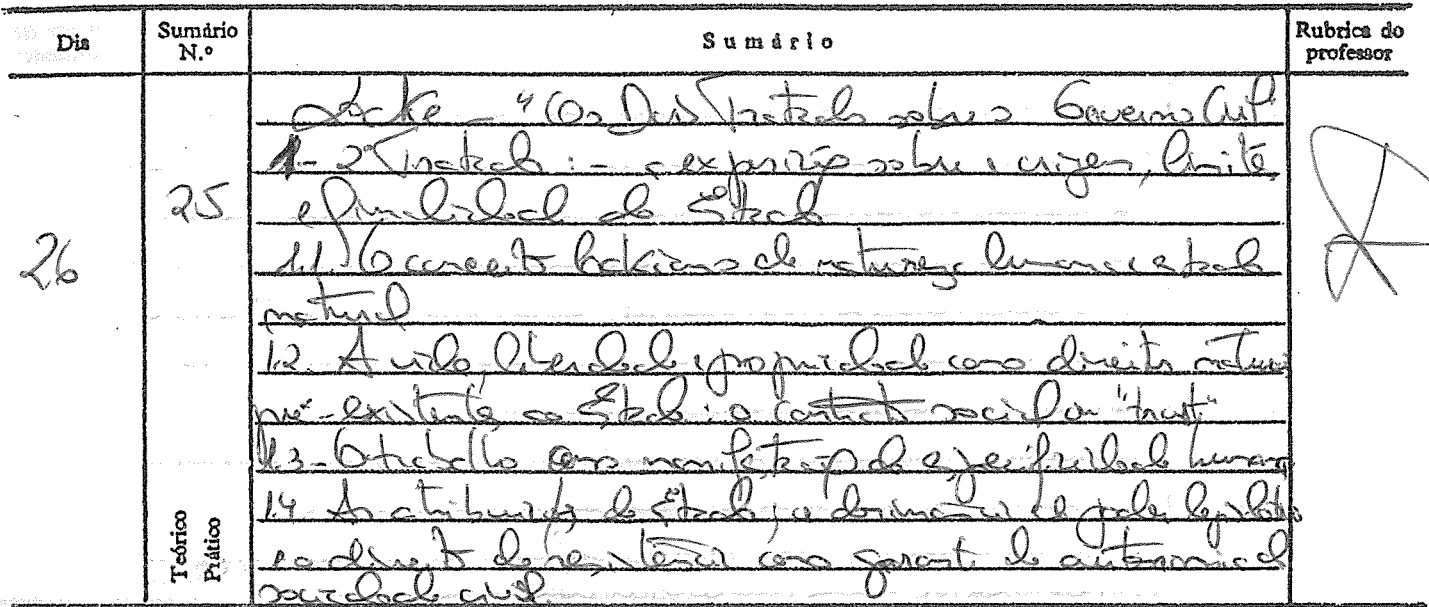 Dia
Sumário N.º
Sumário
Rubrica do professor
26
25
Teórico
Prático
Locke - "Os Dois Tratados sobre o Governo Civil
1- 2º Tratado: - a exposição sobre a origem, limite
e finalidade do Estado
1.1. O conceito lockiano de natureza humana e estado
natural
1.2. A vida liberdade e propriedade como direito natural
pré-existente ao Estado: o contrato social ou "trust"
1.3- O trabalho como manifestação da especificidade humana
1.4 As atribuições do Estado; a dominância do poder legislativo
e o direito de resistência como garante da autonomia da
sociedade civil.